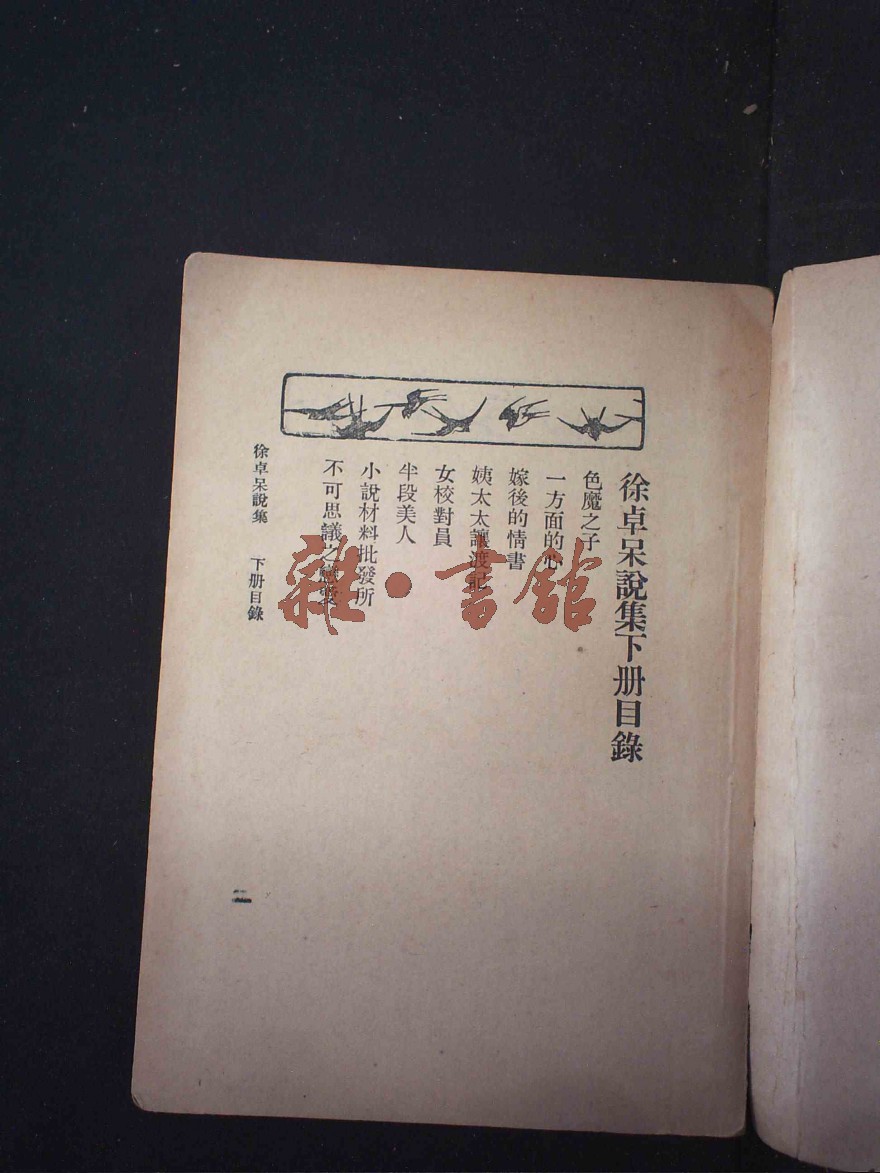 徐卓呆說集下册目錄
色魔之子
一方面的心
嫁後的情書
姨太太讓渡記
女校對員
半段美人
小說材料批發所
不可思議之戀愛
徐卓呆說集 下册目錄
二
雜·書館